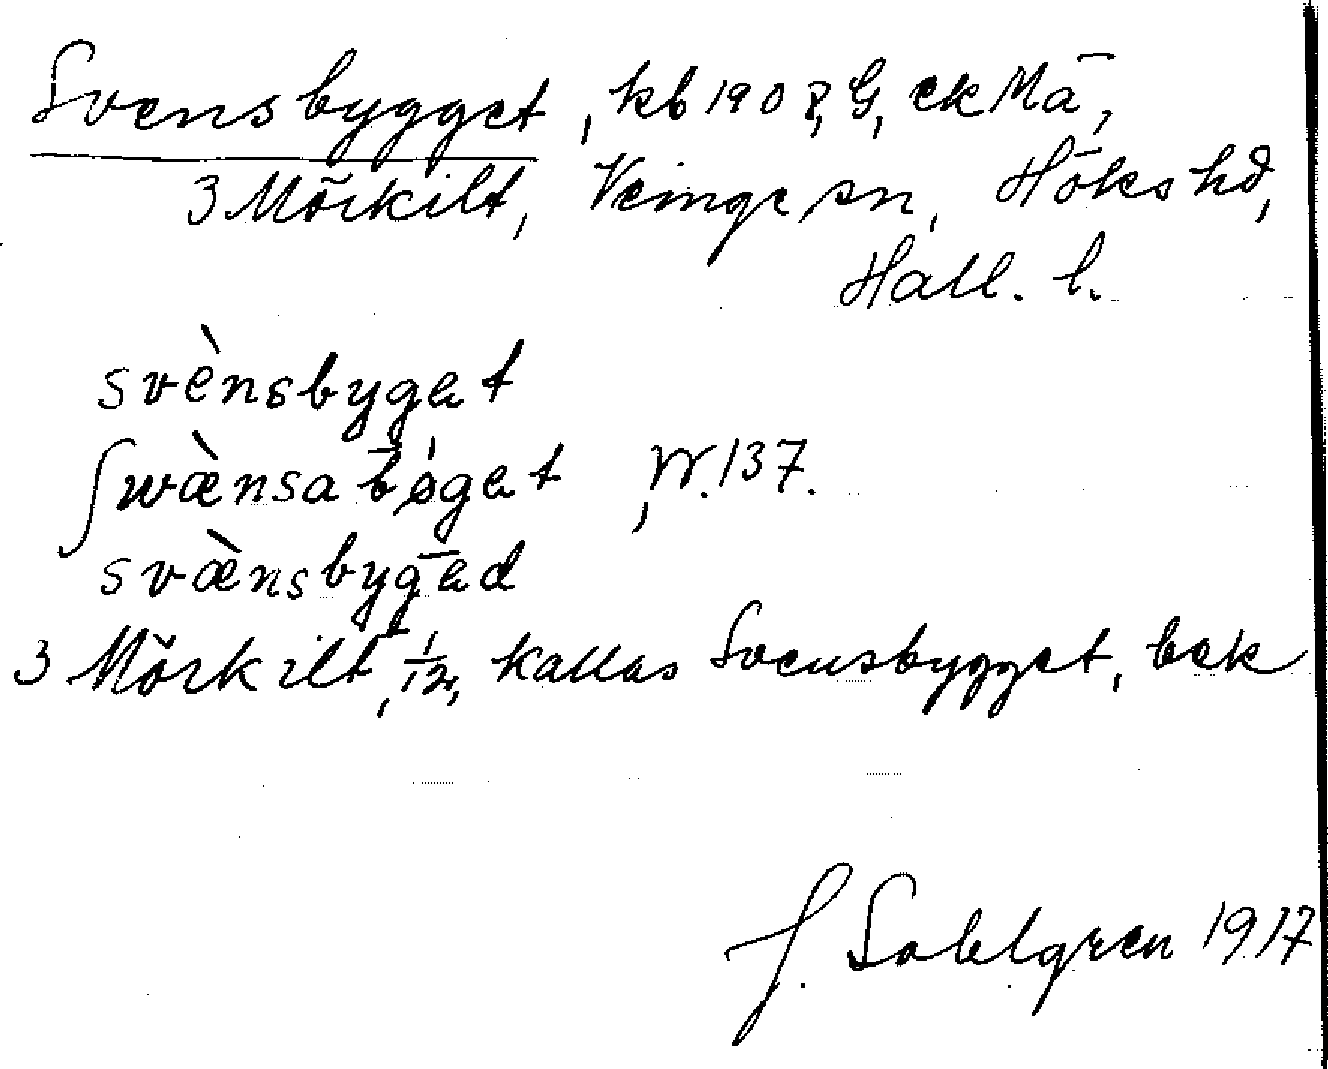 Svensbygget, kb 1908, G, ek Mā,
3 Mörkilt, Veinge sn, Höks hd,
Hall. l.
svènsbyget
ſwænsabøget, W. 137.
svæ̀nsbyged
3 Mörkilt, 1/12, kallas Svensbygget, bek
J. Sahlgren 1917